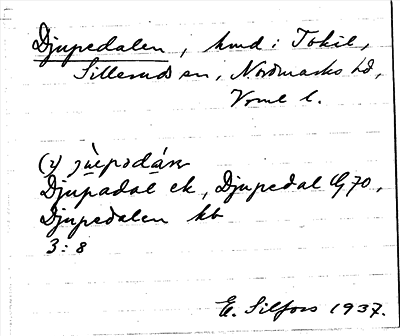 Djupedalen, hmd i Tokil,
Sillerud sn, Nordmarks hd,
Vrml l.
(2)
Djupadal ek, Djupedal G 70,
Djupedalen kb
3:8
E. Silfors 1937.